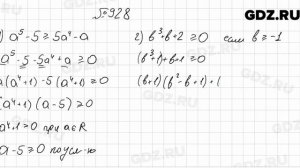 №928
GDZ.RU
) a⁵-5≥5a⁴-a
a⁵-5-5a⁴+a≥0
(a⁴+1)-5(a⁴+1)≥0
(a⁴+1)(a-5)≥0
a⁴+1>0 при a∈R
a-5≥0 по усл-ю
2) b³+b+2≥0 если b≥-1
(b³+1)+b+1≥0
(b+1)(b²-b+1)+(
GDZ.RU